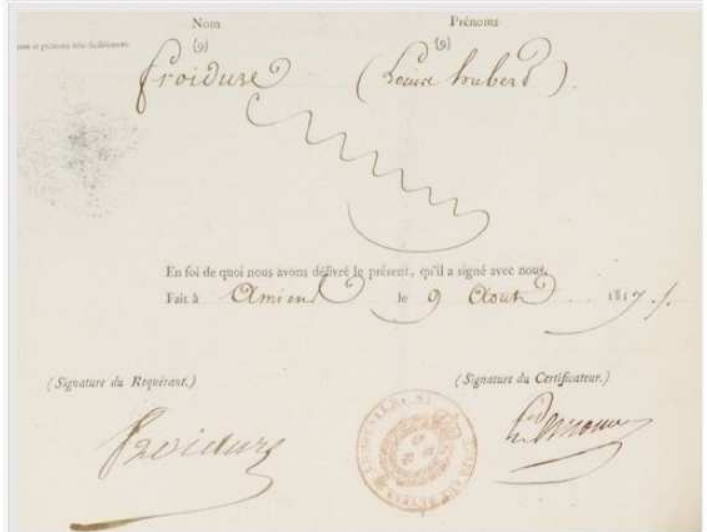 Nom Prénoms
(9) (9)
froidure (Louis hubert).
En foi de quoi nous avons délivré le présent, qu'il a signé avec nous.
Fait à Amiens le 9 Aout 1817./.
(Signature du Requérant.) (Signature du Certificateur.)
froidure